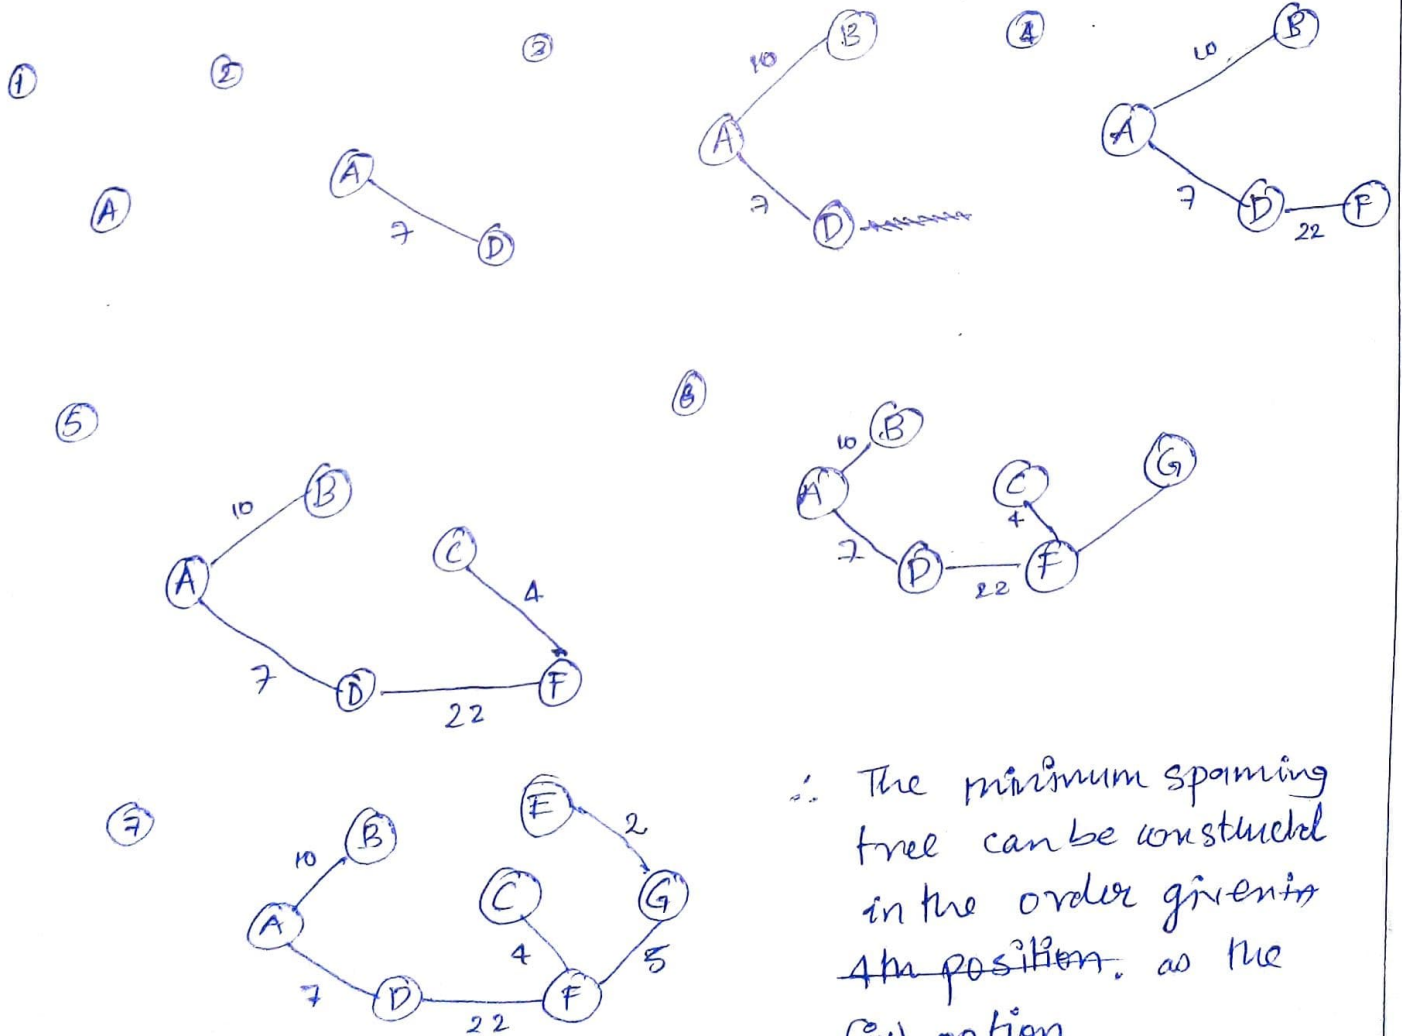 ①
②
③
④
A
A
7
D
10
B
A
7
D
10
B
A
7
D
22
F
⑤
10
B
A
C
4
7
D
22
F
⑥
10
B
A
C
G
4
7
D
22
F
⑦
10
B
E
2
A
C
G
4
5
7
D
22
F
∴ The minimum spaming
tree can be constructed
in the order given in
4th position. as the
option